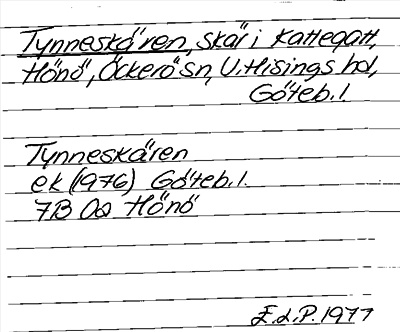 Tynneskären, skär i Kattegatt,
Hönö, Öckerö sn, V. Hisings hd,
Göteb. l.
Tynneskären
ek (1976) Göteb. l.
7B 0a Hönö
E.d.P. 1977